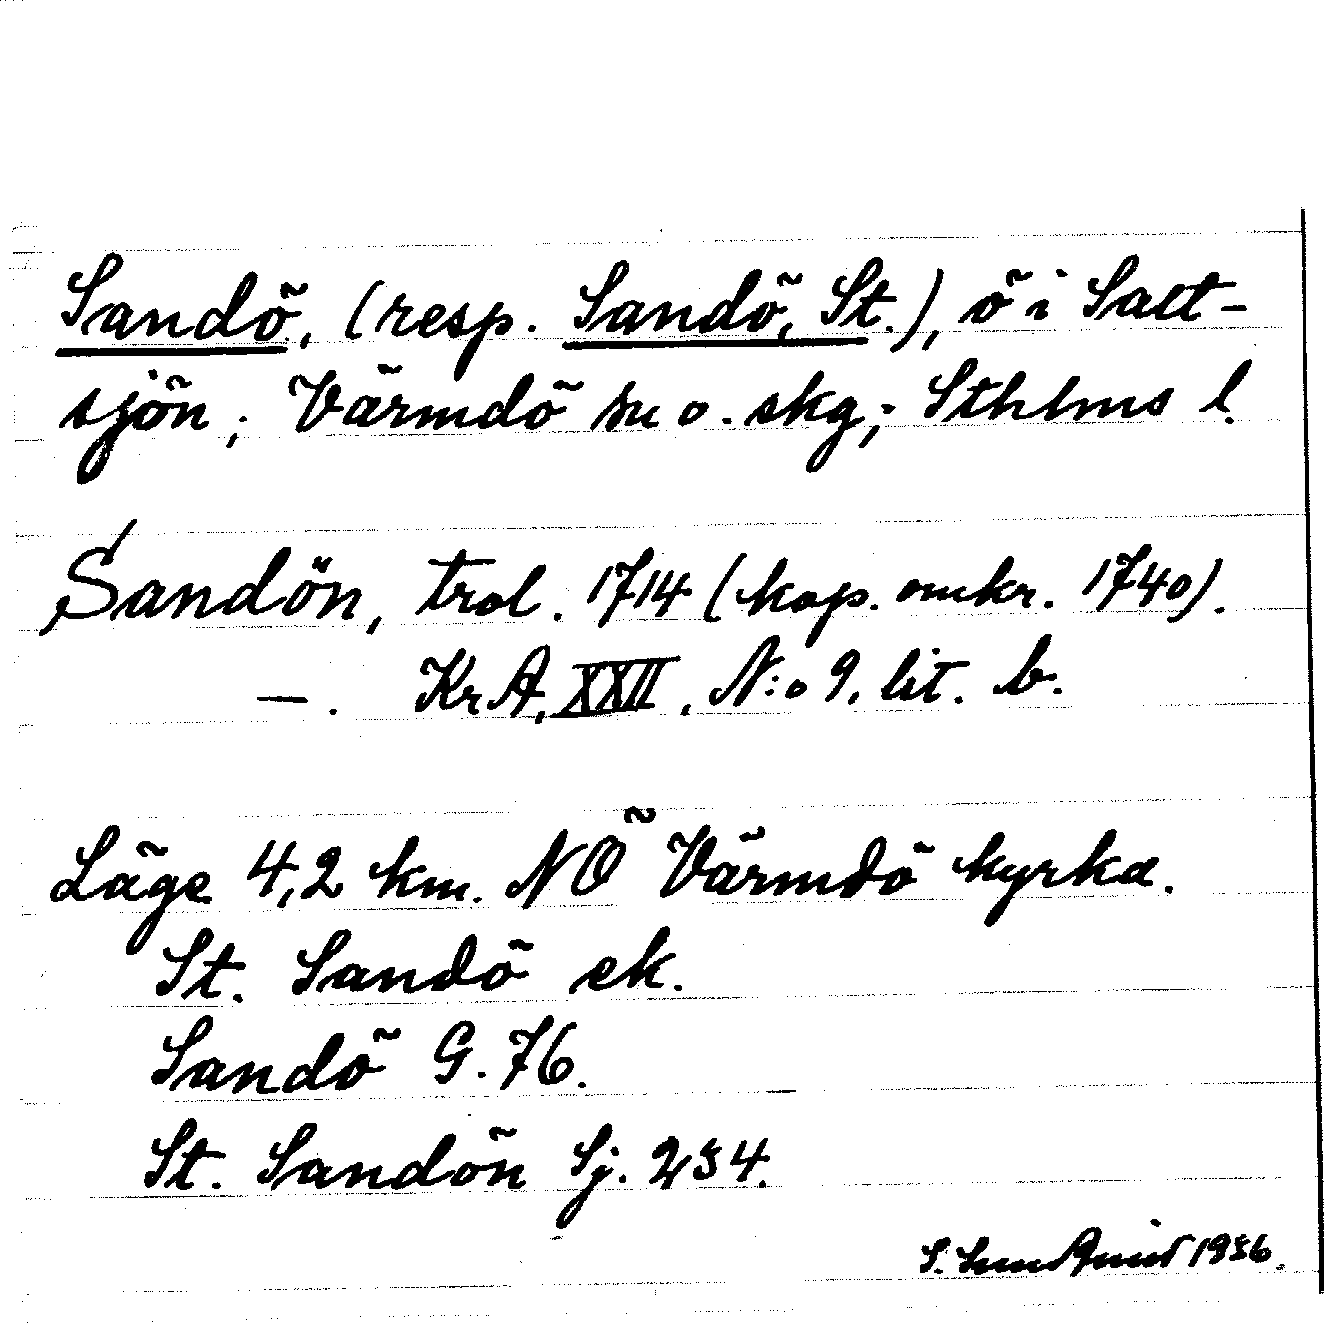 Sandö, (resp. Sandö, St.), ö i Salt-
sjön; Värmdö sn o. skg; Sthlms l.
Sandön, trol. 1714 (kop. omkr. 1740).
—. KrA, XXII, N:o 9, lit. b.
Läge 4,2 km. NÖ Värmdö kyrka.
St. Sandö ek.
Sandö G. 76.
St. Sandön Sj. 254.
S. 1956.